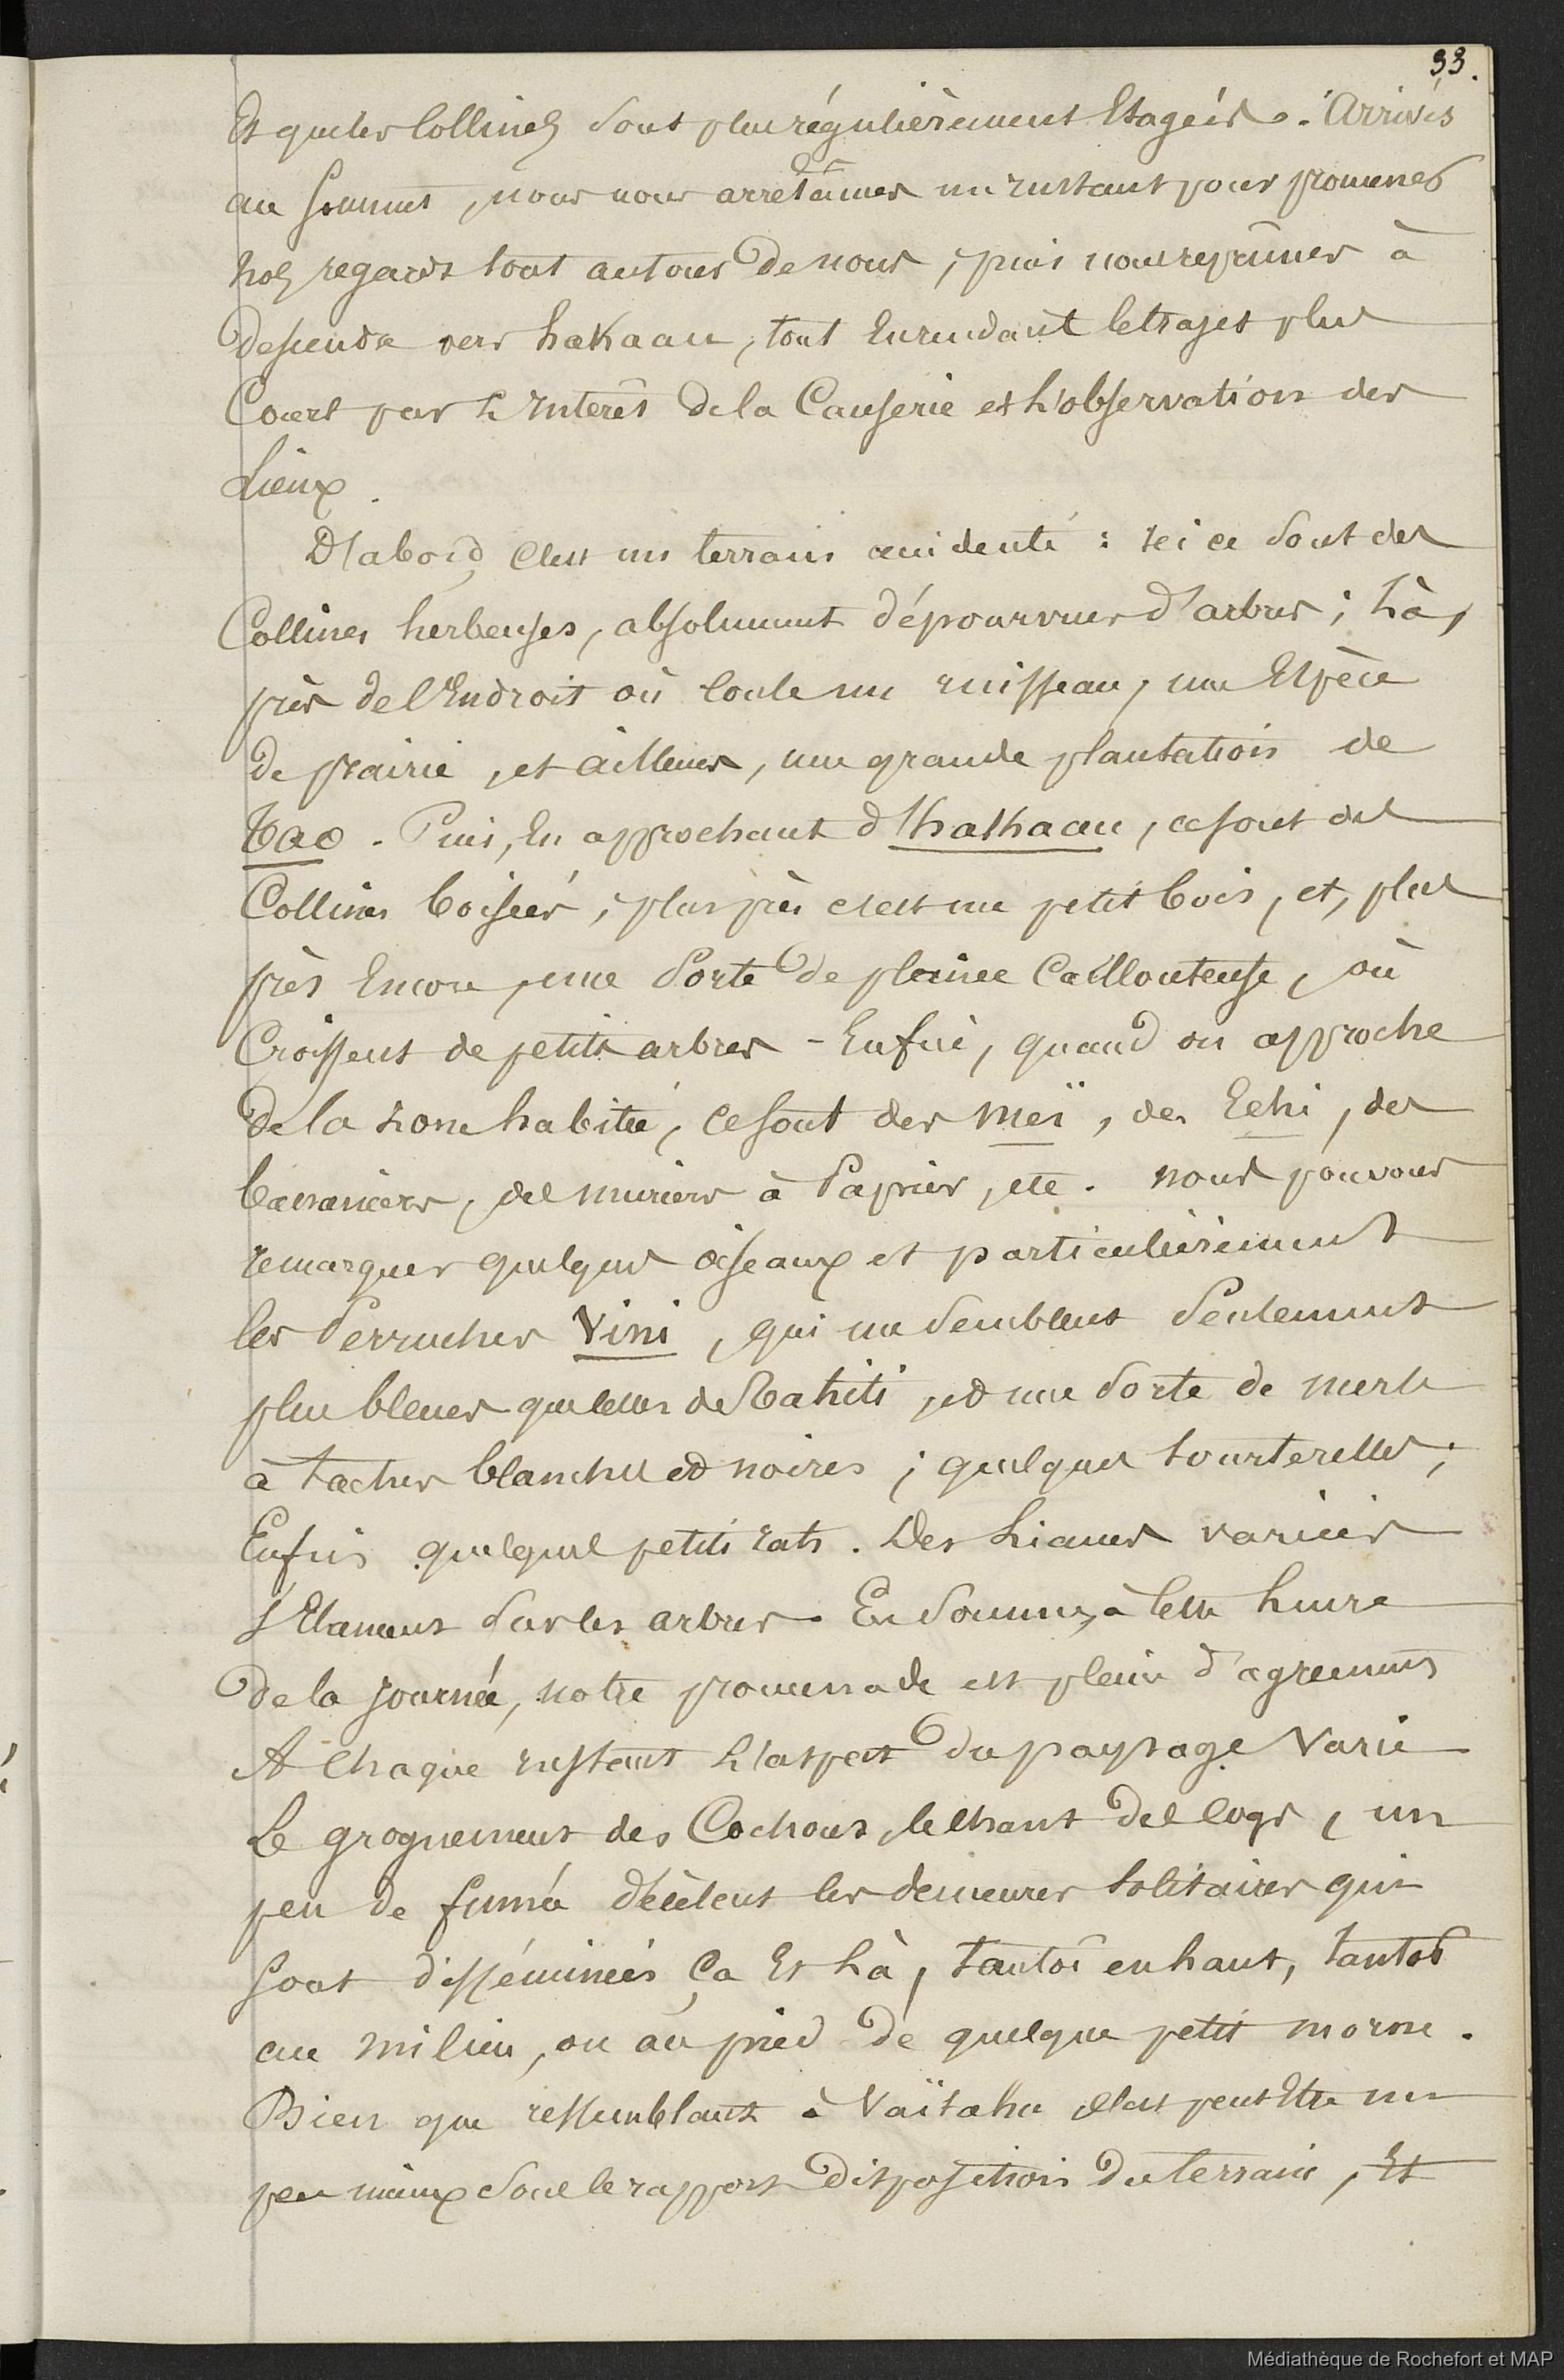 33.
Et que les Collines sont plus régulièrement Etagées. Arrivés
au sommet, nous nous arretâmes un instant pour promener
nos regards tout autour de nous, puis nous reprîmes à
descendre vers hakaau, tout En rendant le trajet plus
Court par L'Intérêt de la Causerie et L'observation des
Lieux.
D'abord, C'est un terrain accidenté : Ici ce sont des
Collines herbeuses, absolument dépourvues d'arbres ; Là,
près de l'Endroit où Coule un ruisseau, une Espèce
de prairie, et ailleurs, une grande plantation de
Tao. Puis, En approchant d'hakaau, ce sont des
Collines boisées, plus près c'est un petit bois, et, plus
près Encore, une sorte de plaine Caillouteuse, où
Croissent de petits arbres - Enfin, quand on approche
de la zone habitée, ce sont des meï, des Eehi, des
bananiers, des muriers à Papier, etc. nous pouvons
remarquer quelques oiseaux et particulièrement
les Perruches Vini, qui me semblent seulement
plus bleues que celles de Tahiti, et une sorte de merle
à taches blanches et noires ; quelques tourterelles ;
Enfin quelques petits rats. Des Lianes variées
s'Elancent sur les arbres. En somme, à cette heure
de la journée, notre promenade est pleine d'agrements
A Chaque instant L'aspect du paysage Varie
Le grognement des Cochons, le chant des Coqs, un
peu de fumée décèlent les demeures solitaires qui
sont disséminées Ça Et Là, tantôt en haut, tantot
au milieu, ou au pied de quelque petit morne.
Bien que ressemblant à Vaïtahu, c'est peut Etre un
peu mieux sous le rapport disposition du terrain, Et
Médiathèque de Rochefort et MAP